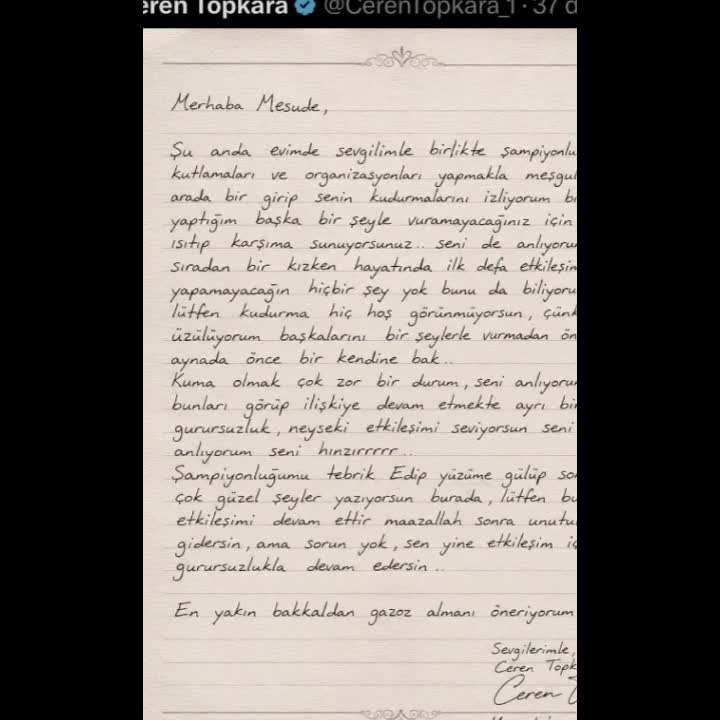 Ceren Topkara @CerenTopkara_1 · 37 d
Merhaba Mesude,
Şu anda evimde sevgilimle birlikte şampiyonlu
kutlamaları ve organizasyonları yapmakla meşgul
arada bir girip senin kudurmalarını izliyorum b
yaptığım başka bir şeyle vuramayacağınız için
ısıtıp karşıma sunuyorsunuz.. seni de anlıyoru
sıradan bir kızken hayatında ilk defa etkileşim
yapamayacağın hiçbir şey yok bunu da biliyoru
lütfen kudurma hiç hoş görünmüyorsun, çünk
üzülüyorum başkalarını bir şeylerle vurmadan ön
aynada önce bir kendine bak..
Kuma olmak çok zor bir durum, seni anlıyoru
bunları görüp ilişkiye devam etmekte ayrı bir
gurursuzluk, neyseki etkileşimi seviyorsun seni
anlıyorum seni hınzırrrrr...
Şampiyonluğumu tebrik Edip yüzüme gülüp so
çok güzel şeyler yazıyorsun burada, lütfen bu
etkileşimi devam ettir maazallah sonra unutu
gidersin, ama sorun yok, sen yine etkileşim iç
gurursuzlukla devam edersin..
En yakın bakkaldan gazoz almanı öneriyorum
Sevgilerimle,
Ceren Topk
Ceren